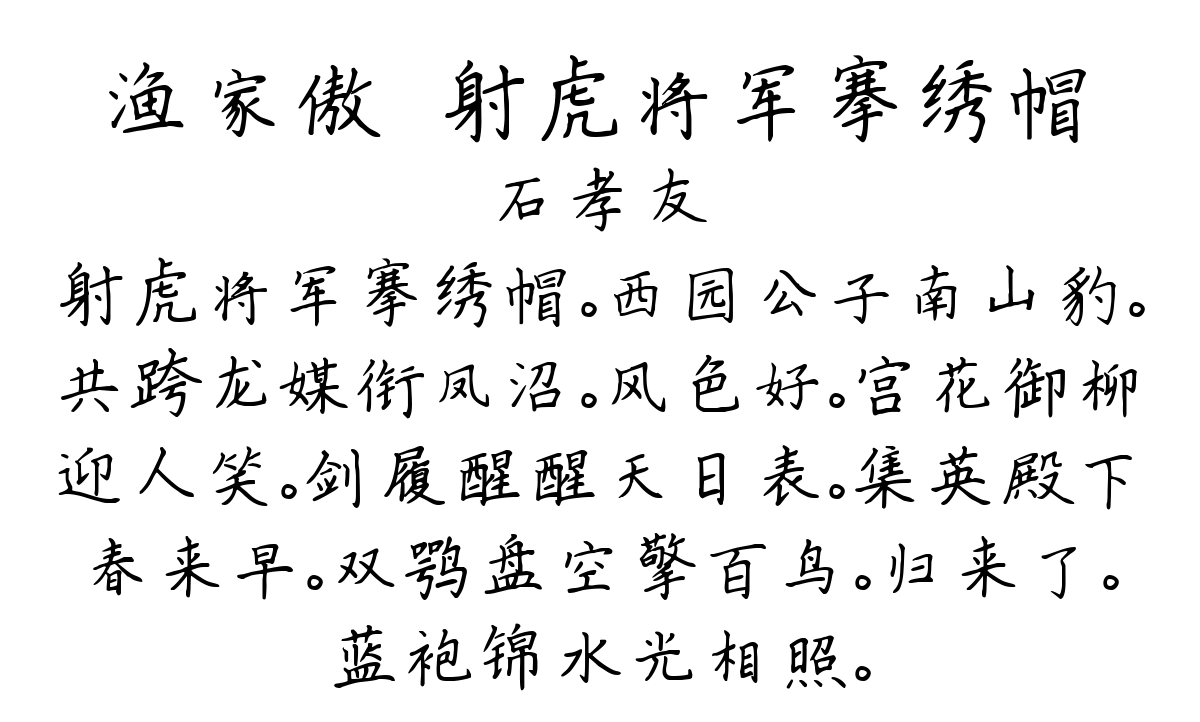 渔家傲 射虎将军搴绣帽
石孝友
射虎将军搴绣帽。西园公子南山豹。
共跨龙媒衔凤沼。风色好。宫花御柳
迎人笑。剑履醒醒天日表。集英殿下
春来早。双鹗盘空擎百鸟。归来了。
蓝袍锦水光相照。